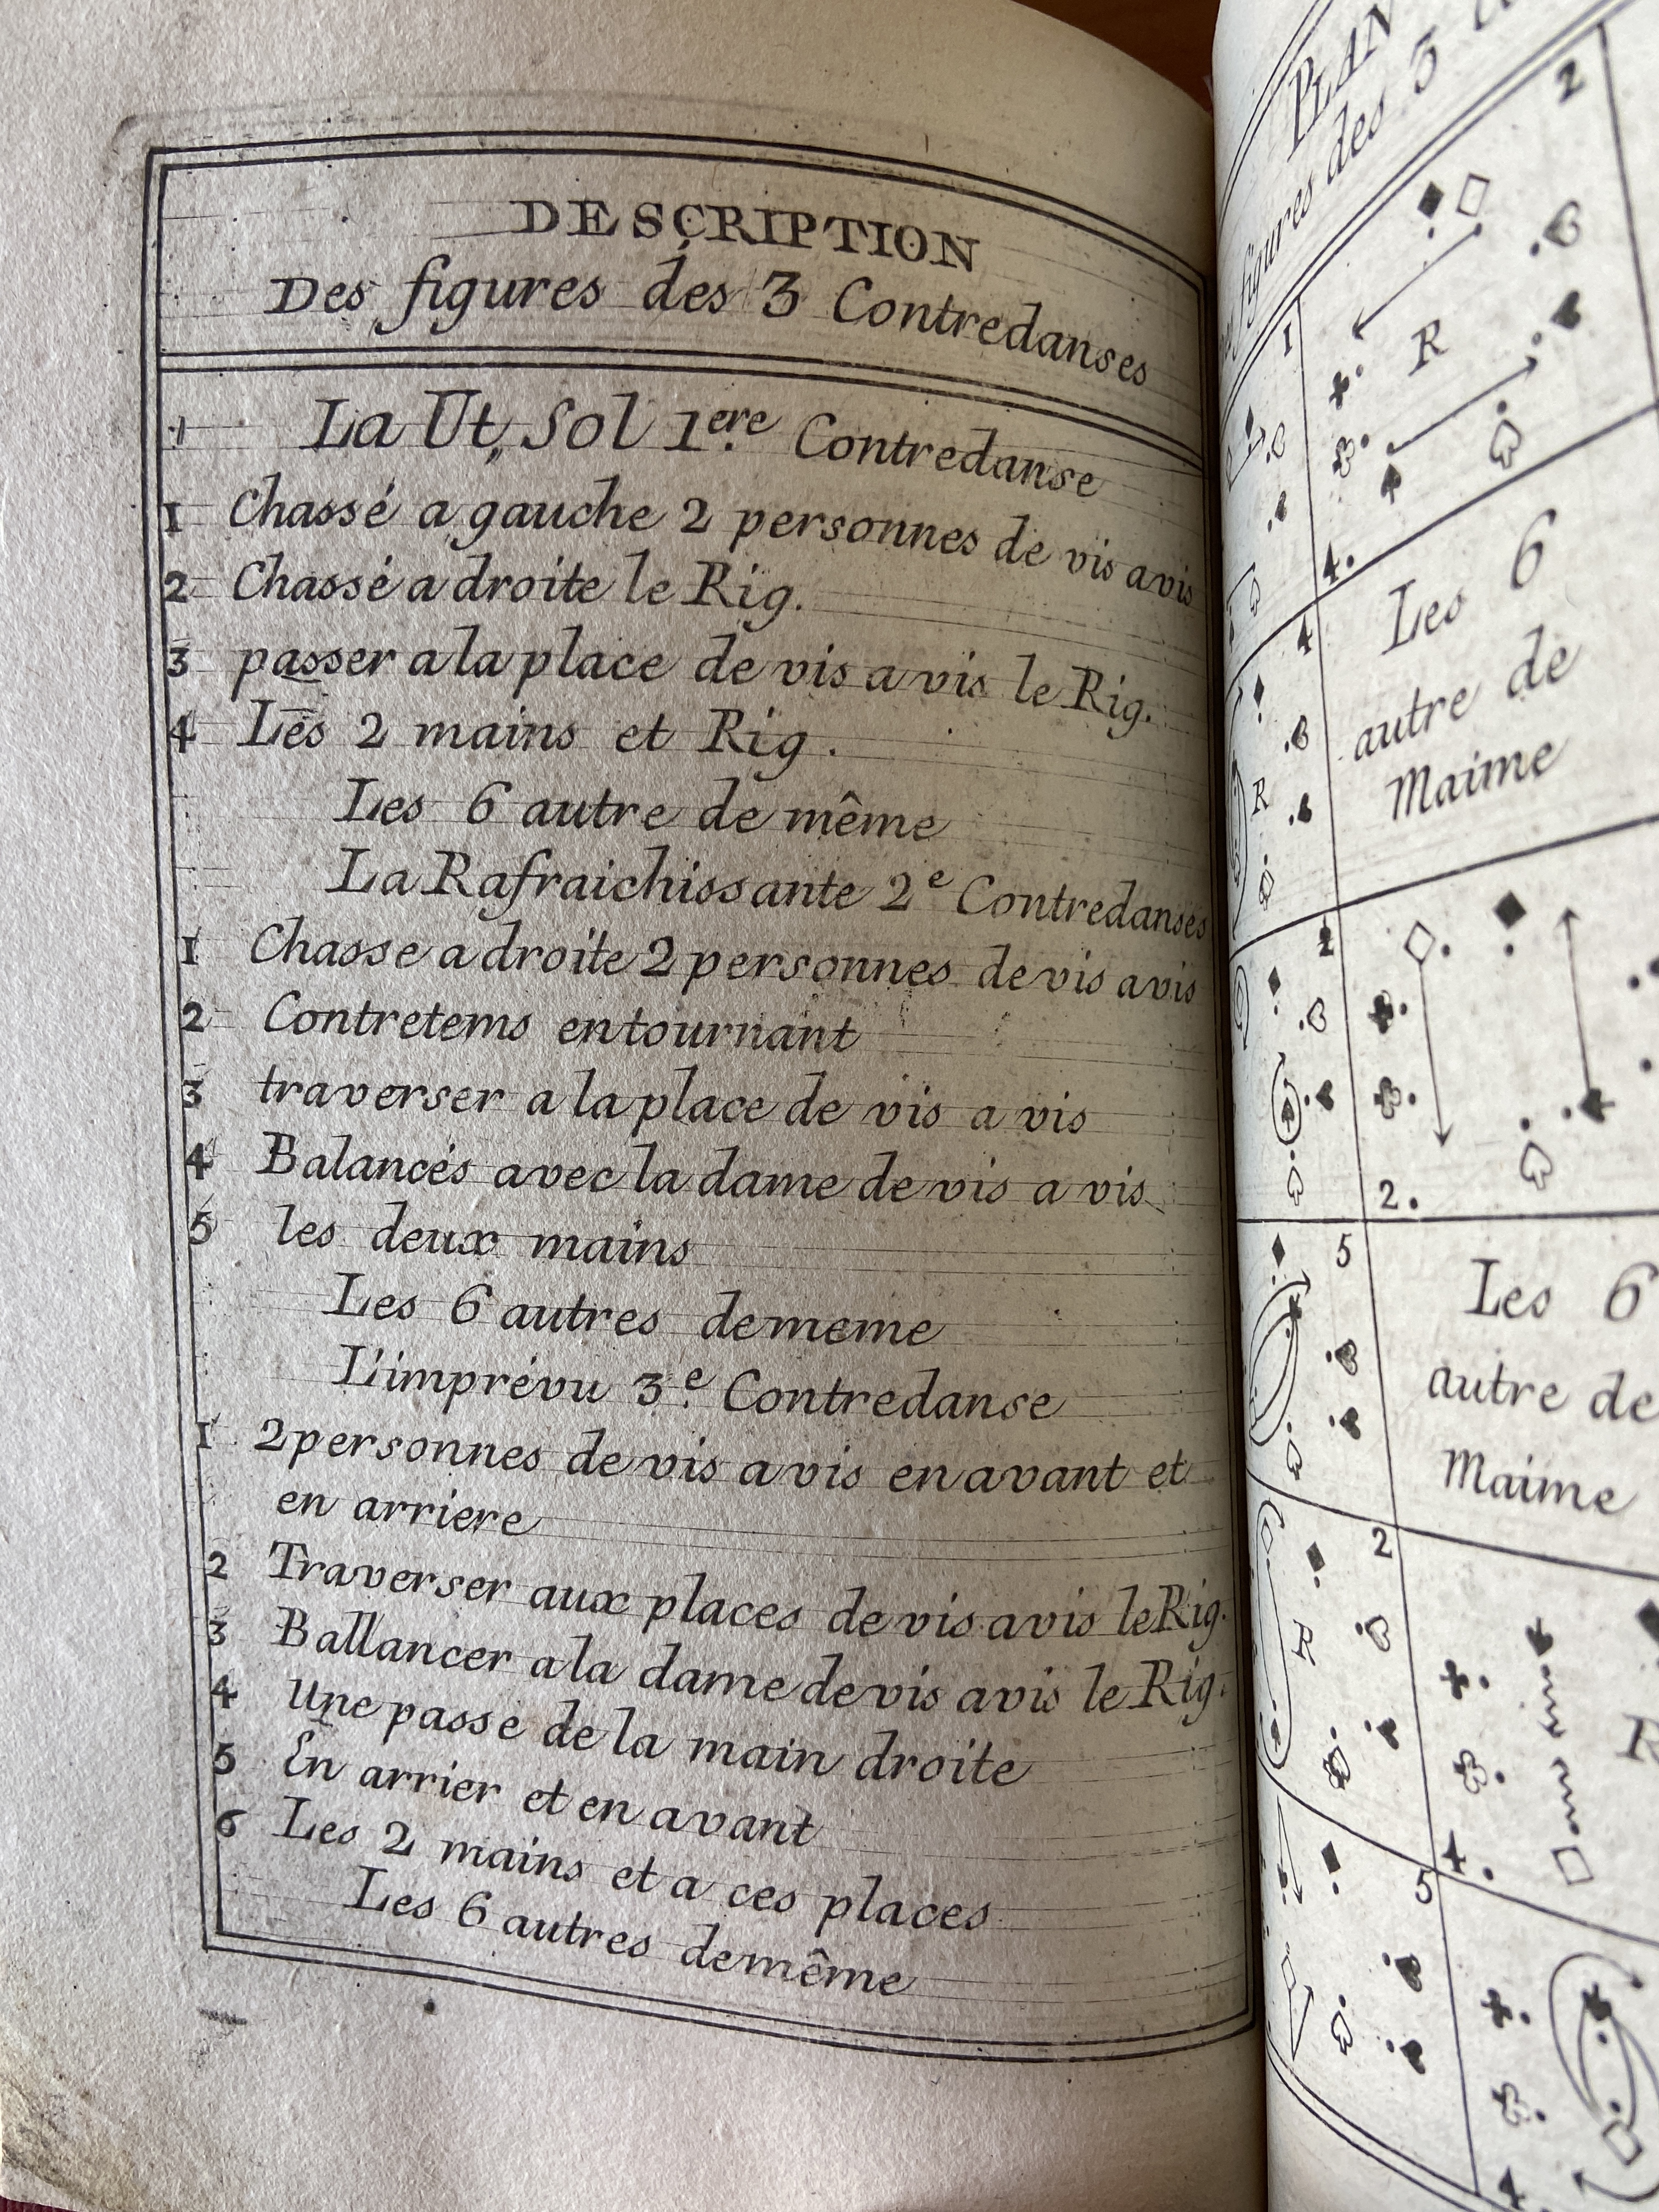 DESCRIPTION
Des figures des 3 Contredanses
La Ut, Sol 1ere Contredanse
1 Chassé a gauche 2 personnes de vis avis
2 Chassé a droite le Rig.
3 passer a la place de vis a vis le Rig.
4 Les 2 mains et Rig.
Les 6 autre de même
La Rafraichissante 2e Contredanses
1 Chasse a droite 2 personnes de vis avis
2 Contretems en tournant
3 traverser a la place de vis a vis
4 Balancés avec la dame de vis a vis
5 les deux mains
Les 6 autres dememe
L'imprévu 3e. Contredanse
1 2 personnes de vis a vis en avant et
en arriere
2 Traverser aux places de vis avis le Rig.
3 Ballancer a la dame de vis avis le Rig.
4 Une passe de la main droite
5 En arrier et en avant
6 Les 2 mains et a ces places
Les 6 autres demême
PLAN
figures des 3
1
2
R
4
R
4.
Les 6
autre de
Maime
2.
5
Les 6
autre de
Maime
2
R
4.
R
5